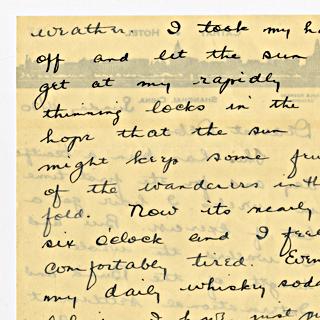 weather. I took my ha
off and let the sun
get at my rapidly
thinning locks in the
hope that the sun
might keep some few
of the wanderers in th
fold. Now its nearly
six o'clock and I feel
comfortably tired. Even
my daily whiskey soda